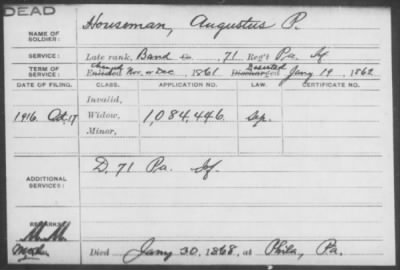 DEAD
NAME OF SOLDIER: Houseman, Augustus P.
SERVICE: Late rank, Band Co. 71 Reg't Pa. Inf
TERM OF SERVICE: Enrolled Nov. or Dec, 1861 Deserted Discharged Jany 19, 1862
DATE OF FILING. CLASS. APPLICATION NO. LAW. CERTIFICATE NO.
Invalid,
1916. Oct. 17 Widow, 1,084,446. Sep.
Minor,
ADDITIONAL SERVICES: D. 71 Pa. Inf.
REMARKS:
Died Jany 30, 1868, at Phila, Pa.